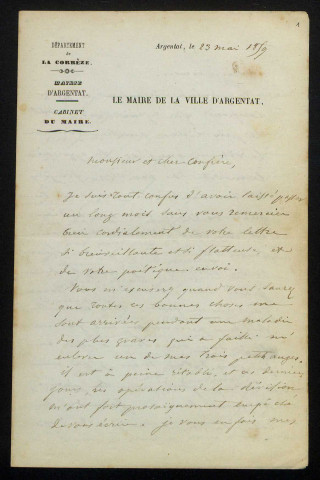 1
DÉPARTEMENT
DE
LA CORRÈZE.
MAIRIE
D'ARGENTAT.
CABINET
DU MAIRE.
Argentat, le 13 mai 18
LE MAIRE DE LA VILLE D'ARGENTAT,
Monsieur et cher Confrère,
Je suis tout confus d'avoir laissé passer
un long mois sans vous remercier
bien cordialement de votre lettre
si bienveillante et si flatteuse, et
de votre poétique envoi.
Vous m'excuserez quand vous saurez
que toutes ces bonnes choses me
sont arrivées pendant une maladie
des plus graves qui a failli m'
enlever un de mes trois petits anges.
il est à peine rétabli, et ces derniers
jours, les opérations de la révision
m'ont fort prosaïquement empêché
de vous écrire. je vous en fais mes